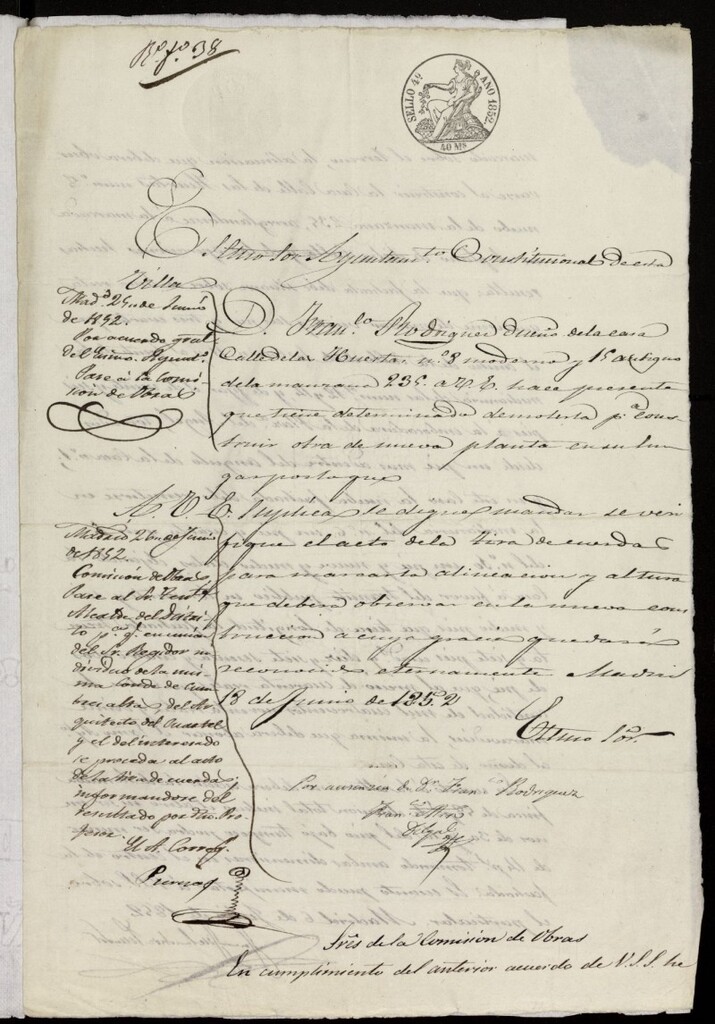 Rº. fº. 38
SELLO 4º AÑO 1852.
40 Ms
Exmo Sor Ayuntamto. Constitucional de esta
Villa
D. Franco. Rodriguez dueño de la casa
Calle de las Huertas nº. 8 moderno y 15 antiguo
de la manzana 235. a V. E. hace presente
que tiene determinado demolerla pa. cons-
truir otra de nueva planta en su lu-
gar por lo que
A. V. E. Suplica se digne mandar se veri-
fique el acto de la tira de cuerdas
para marcar la alineacion y altura
que deberá observar en la nueva cons-
truccion a cuya gracia quedará
reconocido eternamente Madrid
18 de Junio de 1852
Exmo Sor.
Por ausencia de Dn. Franco. Rodriguez
Madd. 25 de Junio
de 1852.
Por acuerdo gral
del Exmo. Ayuntº.
Pase á la Comi-
sion de Obras
Madrid 26 de Junio
de 1852.
Comision de Obras
Pase al Sr. Tente.
Alcalde del Distri-
to pa. q. en union
del Sr. Regidor in-
dividuo de la mis-
ma Conde de Cum-
bres altas del Ar-
quitecto del Cuartel
y el del interesado
se proceda al acto
de la tira de cuerdas,
informandose del
resultado por dho. Pro-
fesor.
El A. Corregr.
Sres de la Comision de Obras
En cumplimiento del anterior acuerdo de V.S.S. he